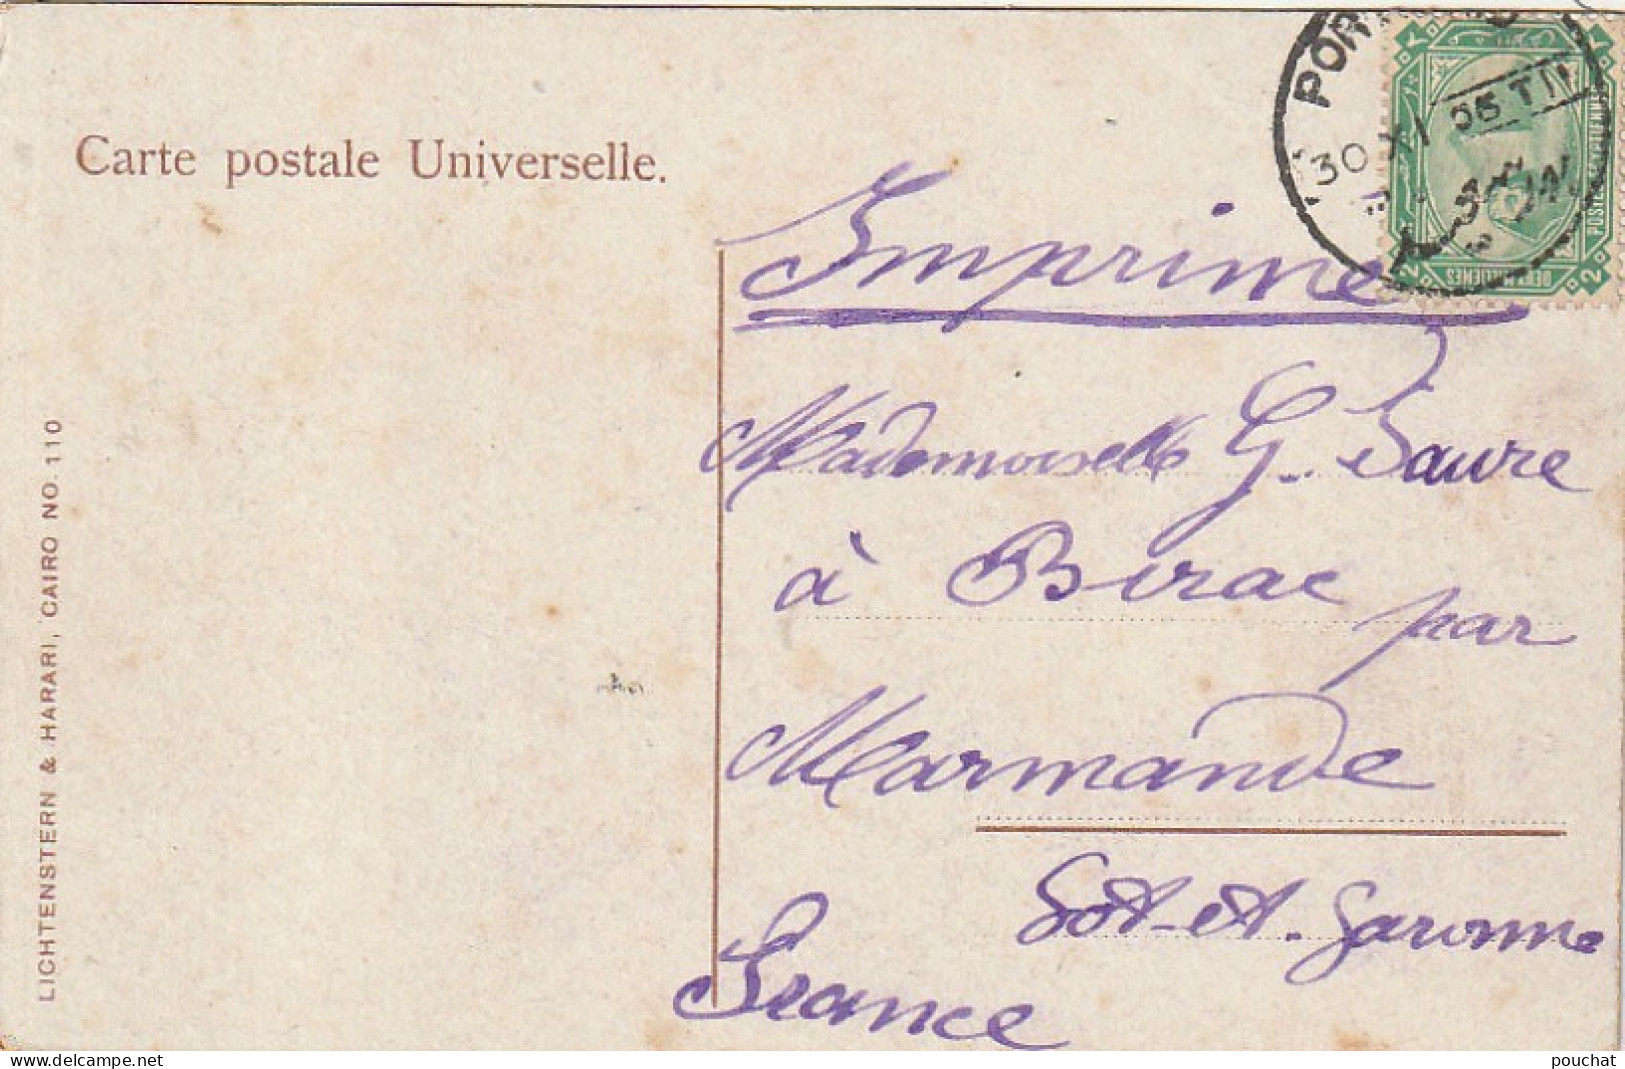 Carte postale Universelle.
LICHTENSTERN & HARARI, CAIRO NO. 110
30 XI 06 T
2
2
POSTES
Imprimé
Mademoiselle G. Faure
à Birac par
Marmande
Lot-et-Garonne
France
delcampe.net
pouchat